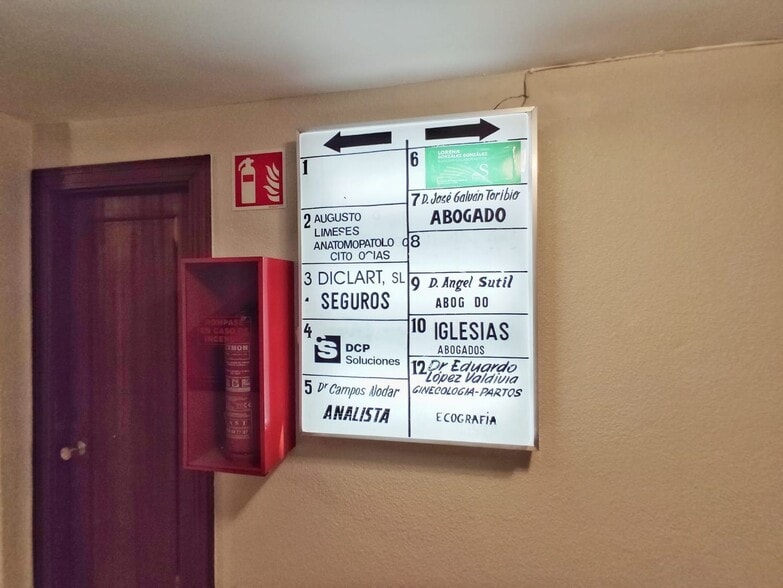 1
2 AUGUSTO
LIMESES
ANATOMOPATOLO
CITO O IAS
3 DICLART, SL
SEGUROS
4
DCP
Soluciones
5 Dr Campos Nodar
ANALISTA
6
LORENA
GONZÁLEZ GONZÁLEZ
7 D. José Galván Toribio
ABOGADO
8
9 D. Angel Sutil
ABOG DO
10 IGLESIAS
ABOGADOS
12 Dr Eduardo
López Valdivia
GINECOLOGIA-PARTOS
ECOGRAFIA
ROMPASE
EN CASO DE
INCENDIO